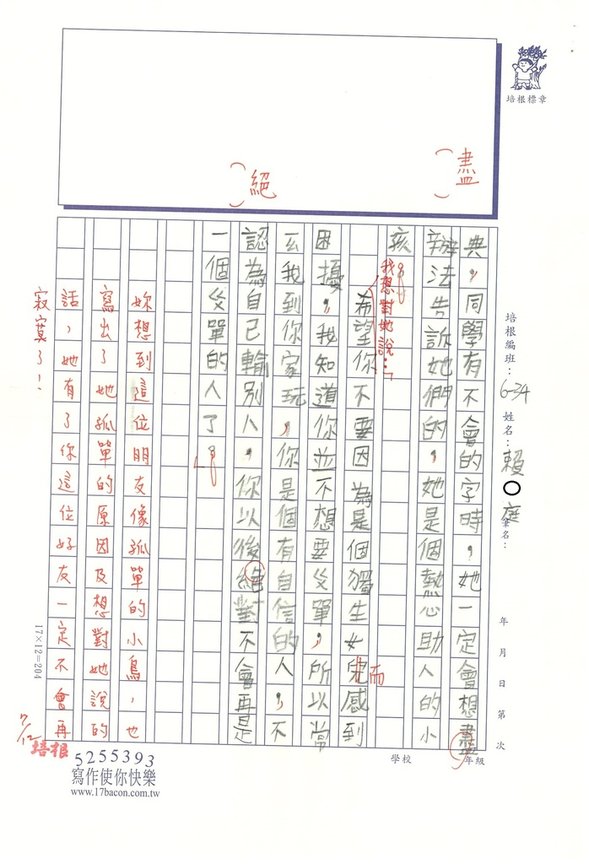 培根標章
盡
絕
培根編班：6-34 姓名：賴○庭 筆名：
年 月 日 第 次
學校
年級
典，同學有不會的字時，她一定會想盡
辦法告訴她們的，她是個熱心助人的小
孩。
我想對她說：「
希望你不要因為是個獨生女兒而感到
困擾，我知道你並不想要孤單，所以常
去我到你家玩，你是個有自信的人，不
認為自己輸別人，你以後絕對不會再是
一個孤單的人了。」
妳想到這位朋友像孤單的小鳥，也
寫出了她孤單的原因及想對她說的
話，她有了你這位好友一定不會再
寂寞了！
17×12=204
7/12
培根
5255393
寫作使你快樂
www.17bacon.com.tw